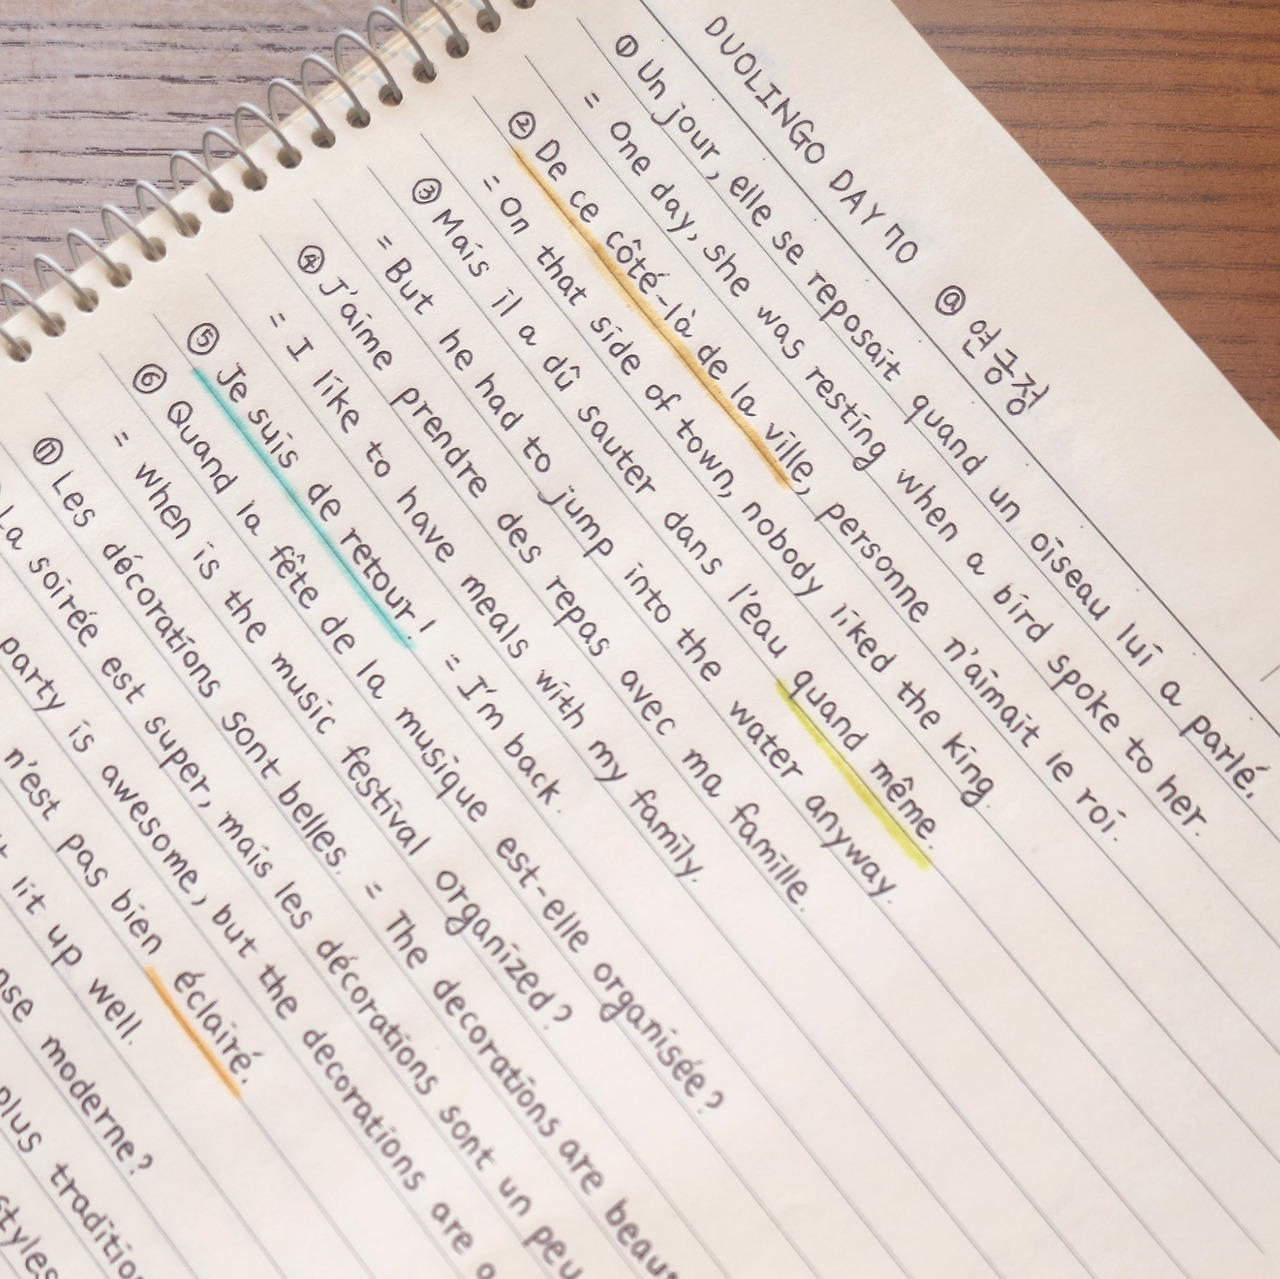 DUOLINGO DAY 70 @ 연긍정
① Un jour, elle se reposait quand un oiseau lui a parlé.
= One day, she was resting when a bird spoke to her.
② De ce côté-là de la ville, personne n'aimait le roi.
= On that side of town, nobody liked the king.
③ Mais il a dû sauter dans l'eau quand même.
= But he had to jump into the water anyway.
④ J'aime prendre des repas avec ma famille.
= I like to have meals with my family.
⑤ Je suis de retour! = I'm back.
⑥ Quand la fête de la musique est-elle organisée?
= When is the music festival organized?
⑦ Les décorations sont belles. = The decorations are
La soirée est super, mais les décorations sont un peu
party is awesome, but the decorations are
n'est pas bien éclairé.
lit up well.
moderne?
plus
styles